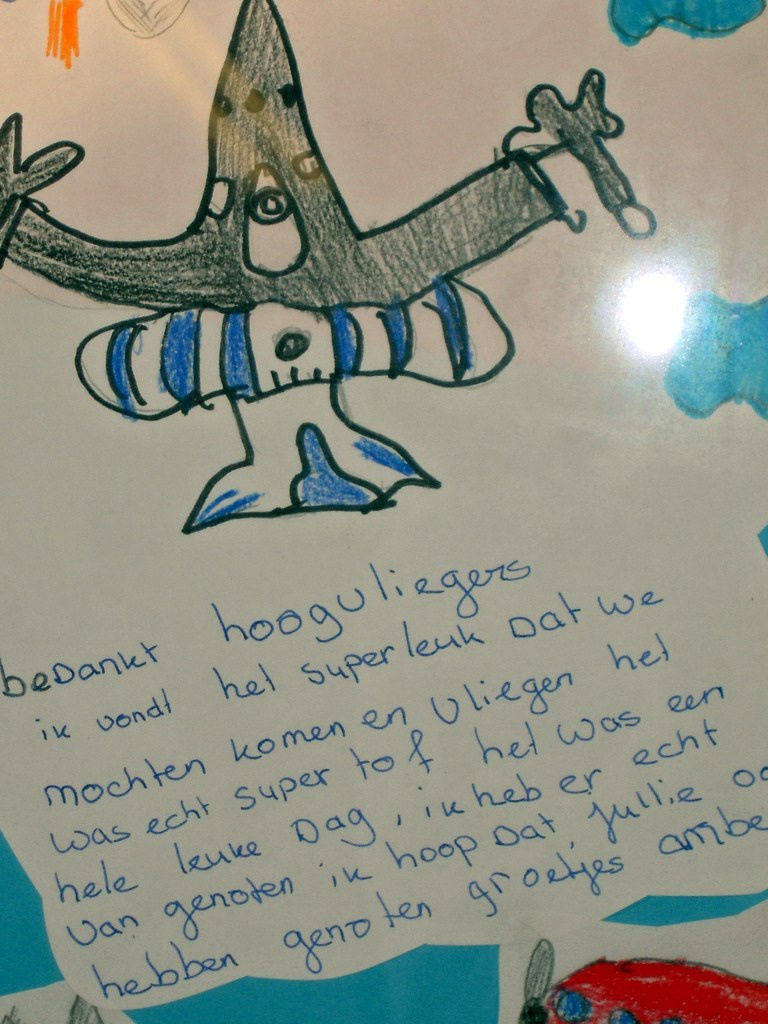 beDankt hoogvliegers
ik vondt het superleuk Dat we
mochten komen en vliegen het
was echt super tof het was een
hele leuke Dag, ik heb er echt
van genoten ik hoop Dat jullie oo
hebben genoten groetjes ambe